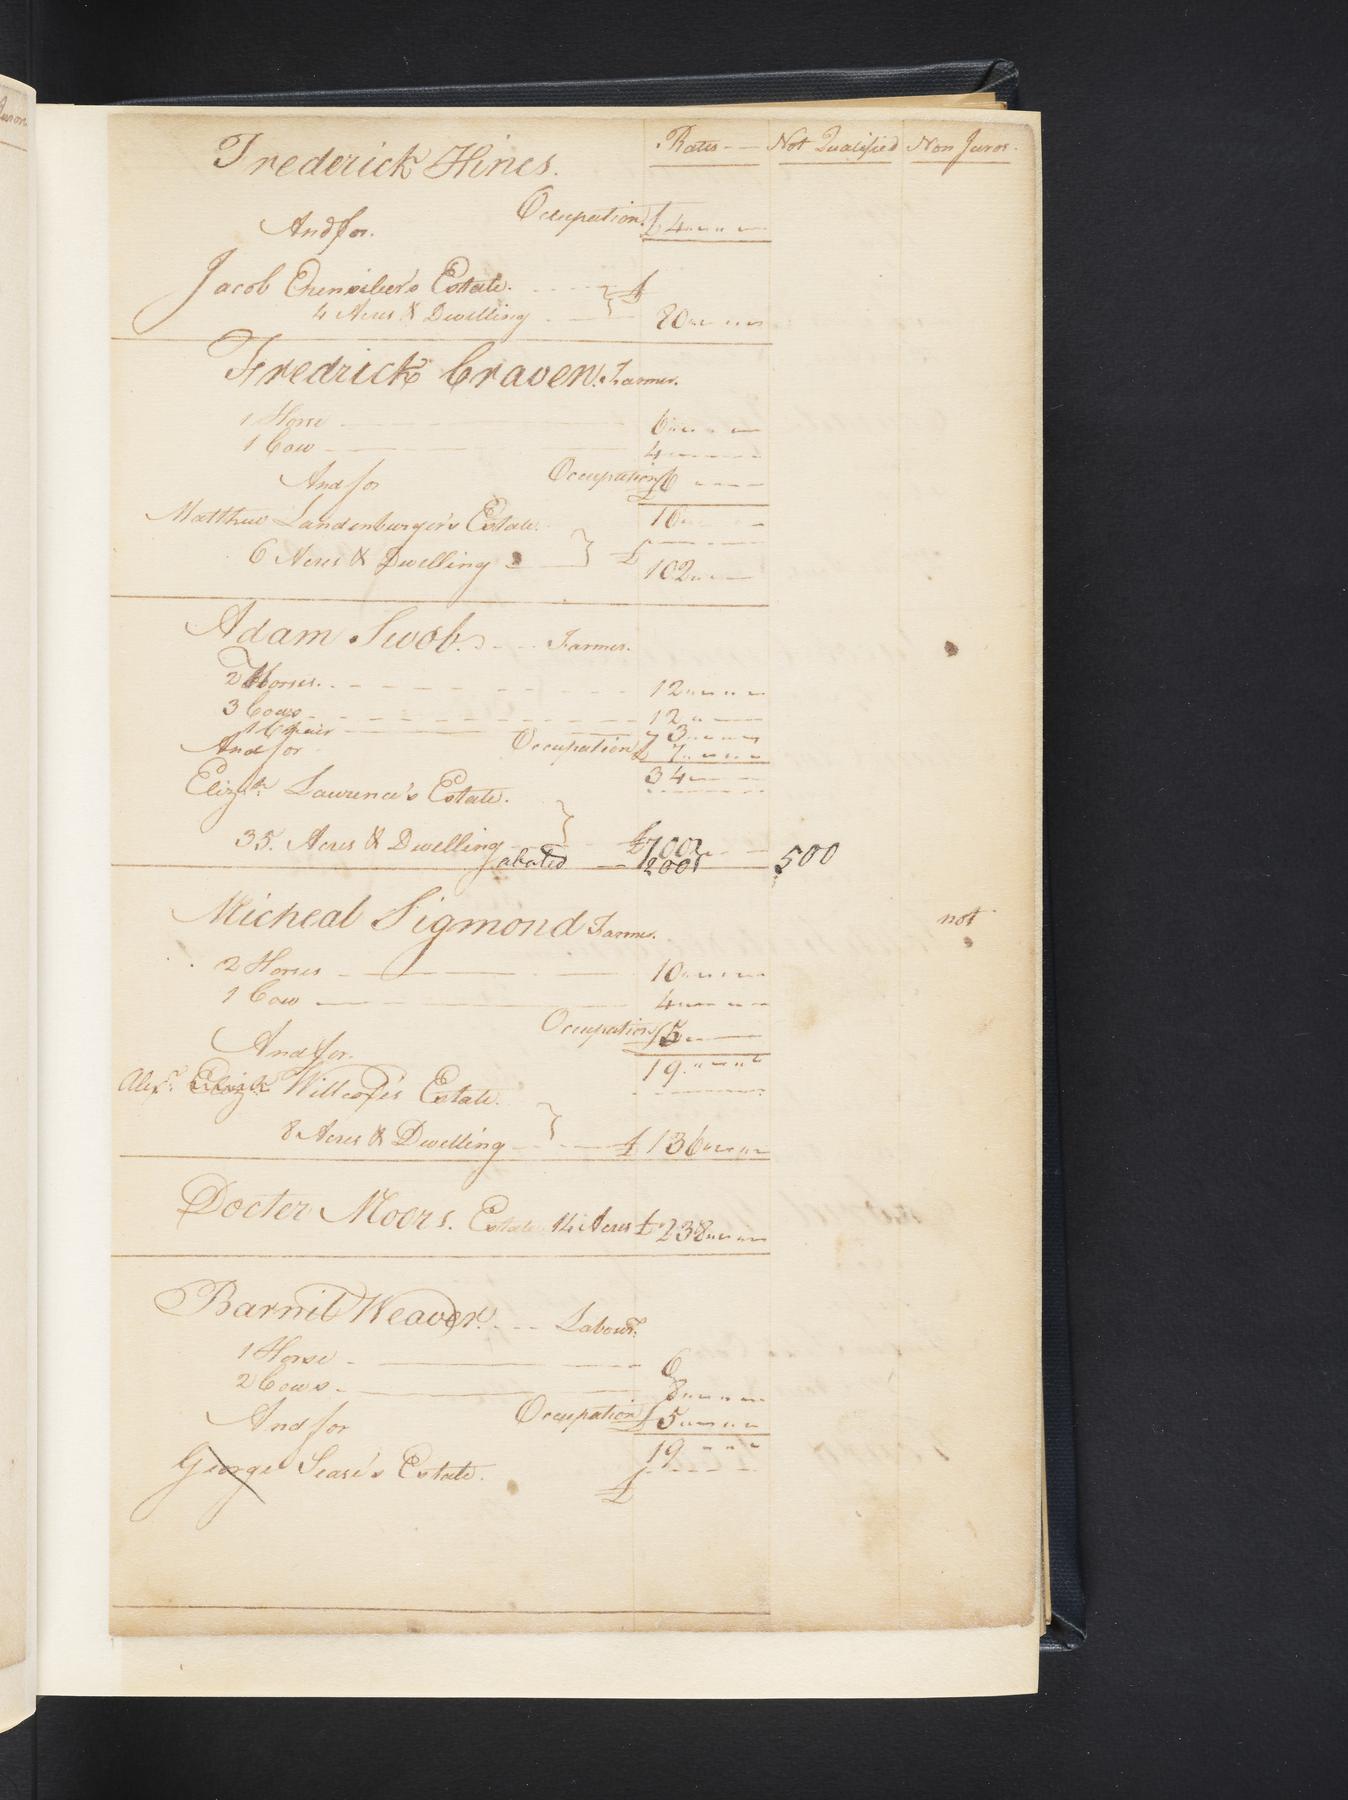 Rates -- Not Qualified Non Juror
Frederick Hines.
Occupation £4
And for.
Jacob Estate. £
4 Acres & Dwelling 80
Fredrick Craven. Farmer.
1 Horse 6
1 Cow 4
And for Occupation £6
16
Matthew Landenburger's Estate.
6 Acres & Dwelling £ 102
Adam Swob. Farmer.
2 Horses. 12
3 Cows 12
1 Chair 3
And for Occupation £ 7
34
Elizth. Lawrence's Estate.
35. Acres & Dwelling £700
abated 200 500
Micheal Sigmond Farmer. not
2 Horses 10
1 Cow 4
Occupation £5
And for.
19
Alexr. Elizh Willcox's Estate.
8 Acres & Dwelling £ 136
Docter Moors. Estate 14 Acres £ 238
Barnit Weaver. Labour.
1 Horse 6
2 Cows 8
And for Occupation £5
19
George Estate. £